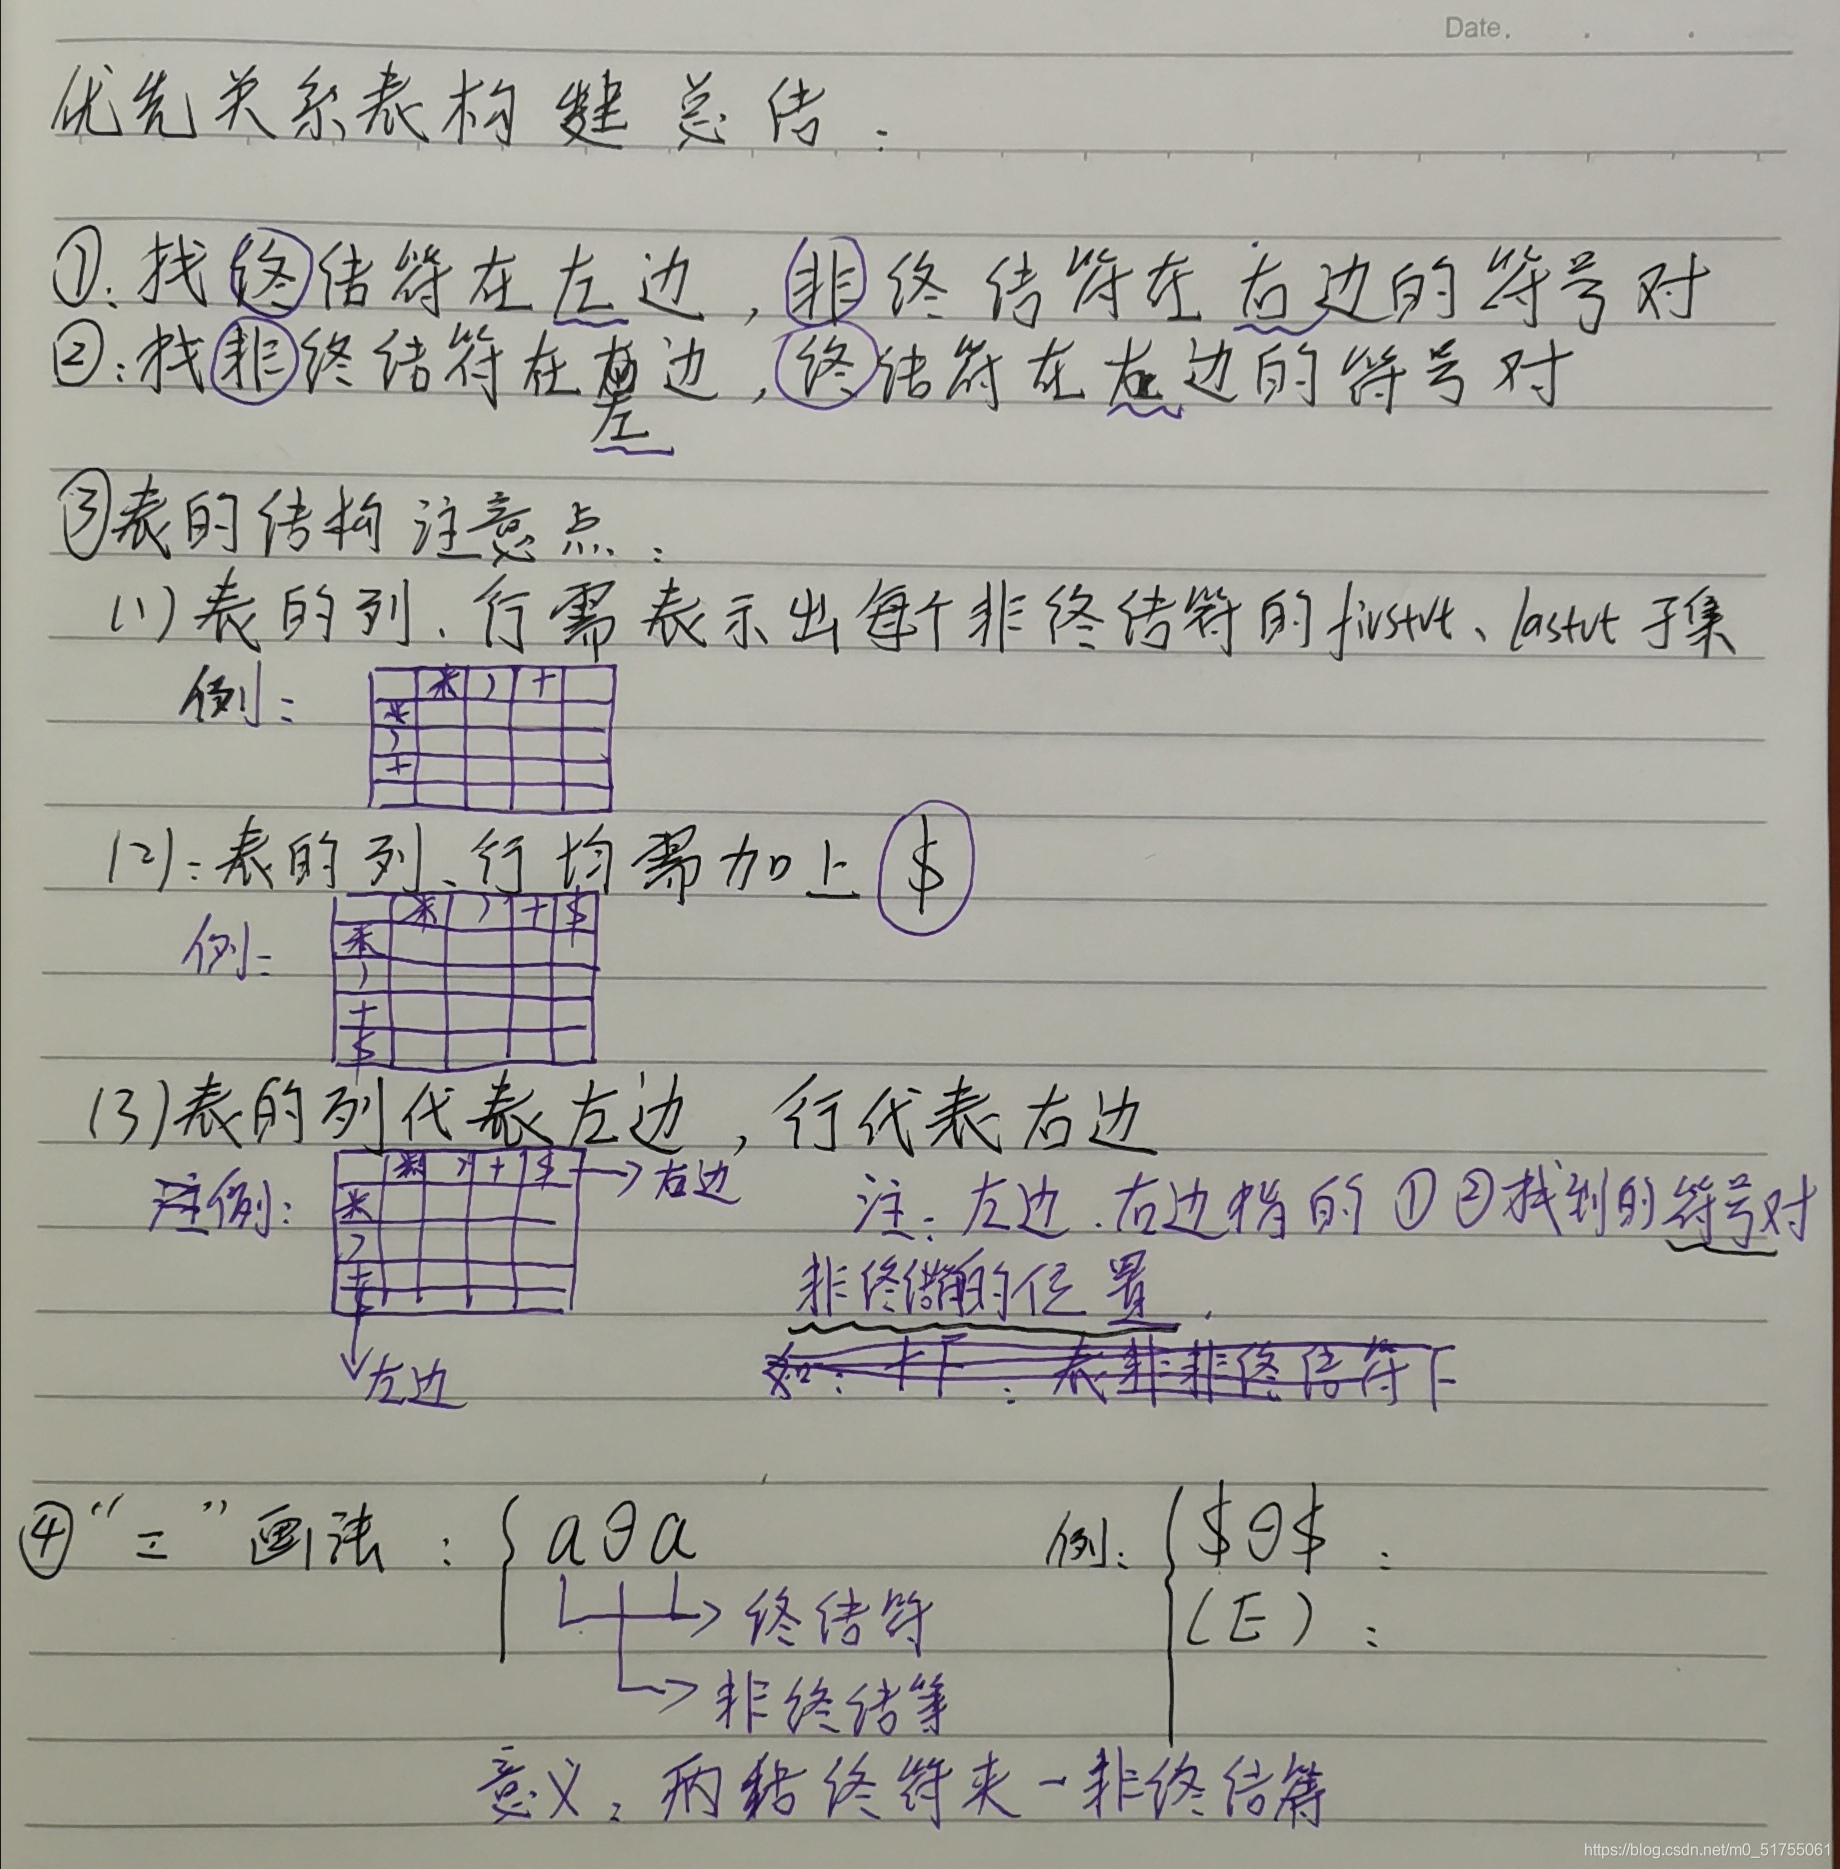 Date.
优先关系表构建总结：
①：找终结符在左边，非终结符在右边的符号对
②：找非终结符在左边，终结符在右边的符号对
③表的结构注意点：
(1)表的列、行需表示出每个非终结符的firstvt、lastvt子集
例：
* ) +
*
)
+
(2)：表的列、行均需加上 $
例：
* ) + $
*
)
+
$
(3)表的列代表左边，行代表右边
注例：
* ) + $ → 右边
*
)
+
$
左边
注：左边、右边指的①②找到的符号对
非终结符的位置.
④“=”画法：{ aθa
终结符
非终结符
例：{ $θ$ ：
(E) ：
意义：两终符夹一非终结符
https://blog.csdn.net/m0_51755061